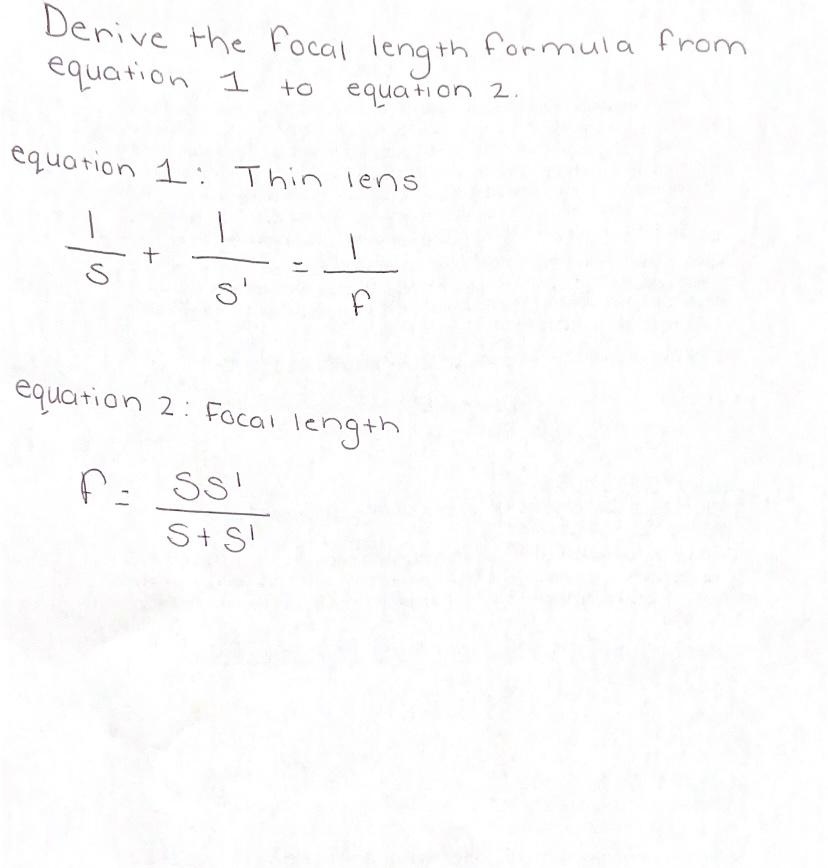 Derive the focal length formula from
equation 1 to equation 2.
equation 1: Thin lens
1/s + 1/s' = 1/f
equation 2: Focal length
f = ss'/s+s'